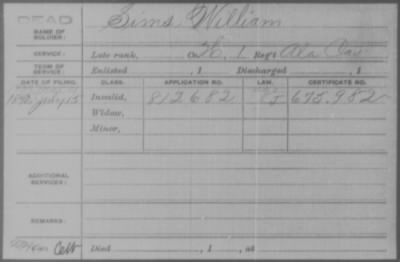 DEAD
NAME OF SOLDIER: Sims William
SERVICE: Late rank, Co. H, 1 Reg't Ala Cav
TERM OF SERVICE: Enlisted , 1 Discharged , 1
DATE OF FILING. CLASS. APPLICATION NO. LAW. CERTIFICATE NO.
1890 July 15 Invalid, 812682 675.982
Widow,
Minor,
ADDITIONAL SERVICES:
REMARKS:
Died , 1 , at